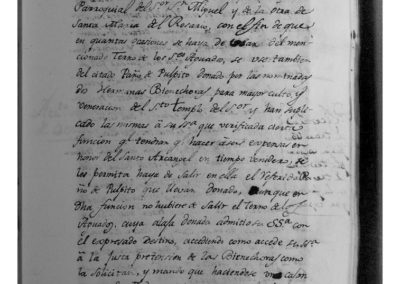 Parroquial del Sr. Sn. Miguel y de la otra de
Santa Maria del Rosario, con el fin de que
en quantas ocasiones se haya de usar del men-
cionado Terno de los Sres. Aguado, se use tambien
del citado Paño de Pulpito donado por las nominada
do Hermanas Bienechoras para mayor culto, y
veneracion del Sto. Templo del Sor. y han supli-
cado las mismas à S.SSa. que verificada dicha
funcion qe. tendran qe. hacer à sus expensas en
honor del Santo Arcangel en tiempo
les permita haya de Salir en ella el referido Pa-
ño de Pulpito que llevan donado, aunque en
Dha. funcion no hubiere de Salir el Terno de los
Aguados, cuya alaja donada admitio su SSa. con
el expresado destino, accediendo como accede S.SSa.
à la justa pretension de las Bienechoras como
la Solicitan, y mando que haciendose